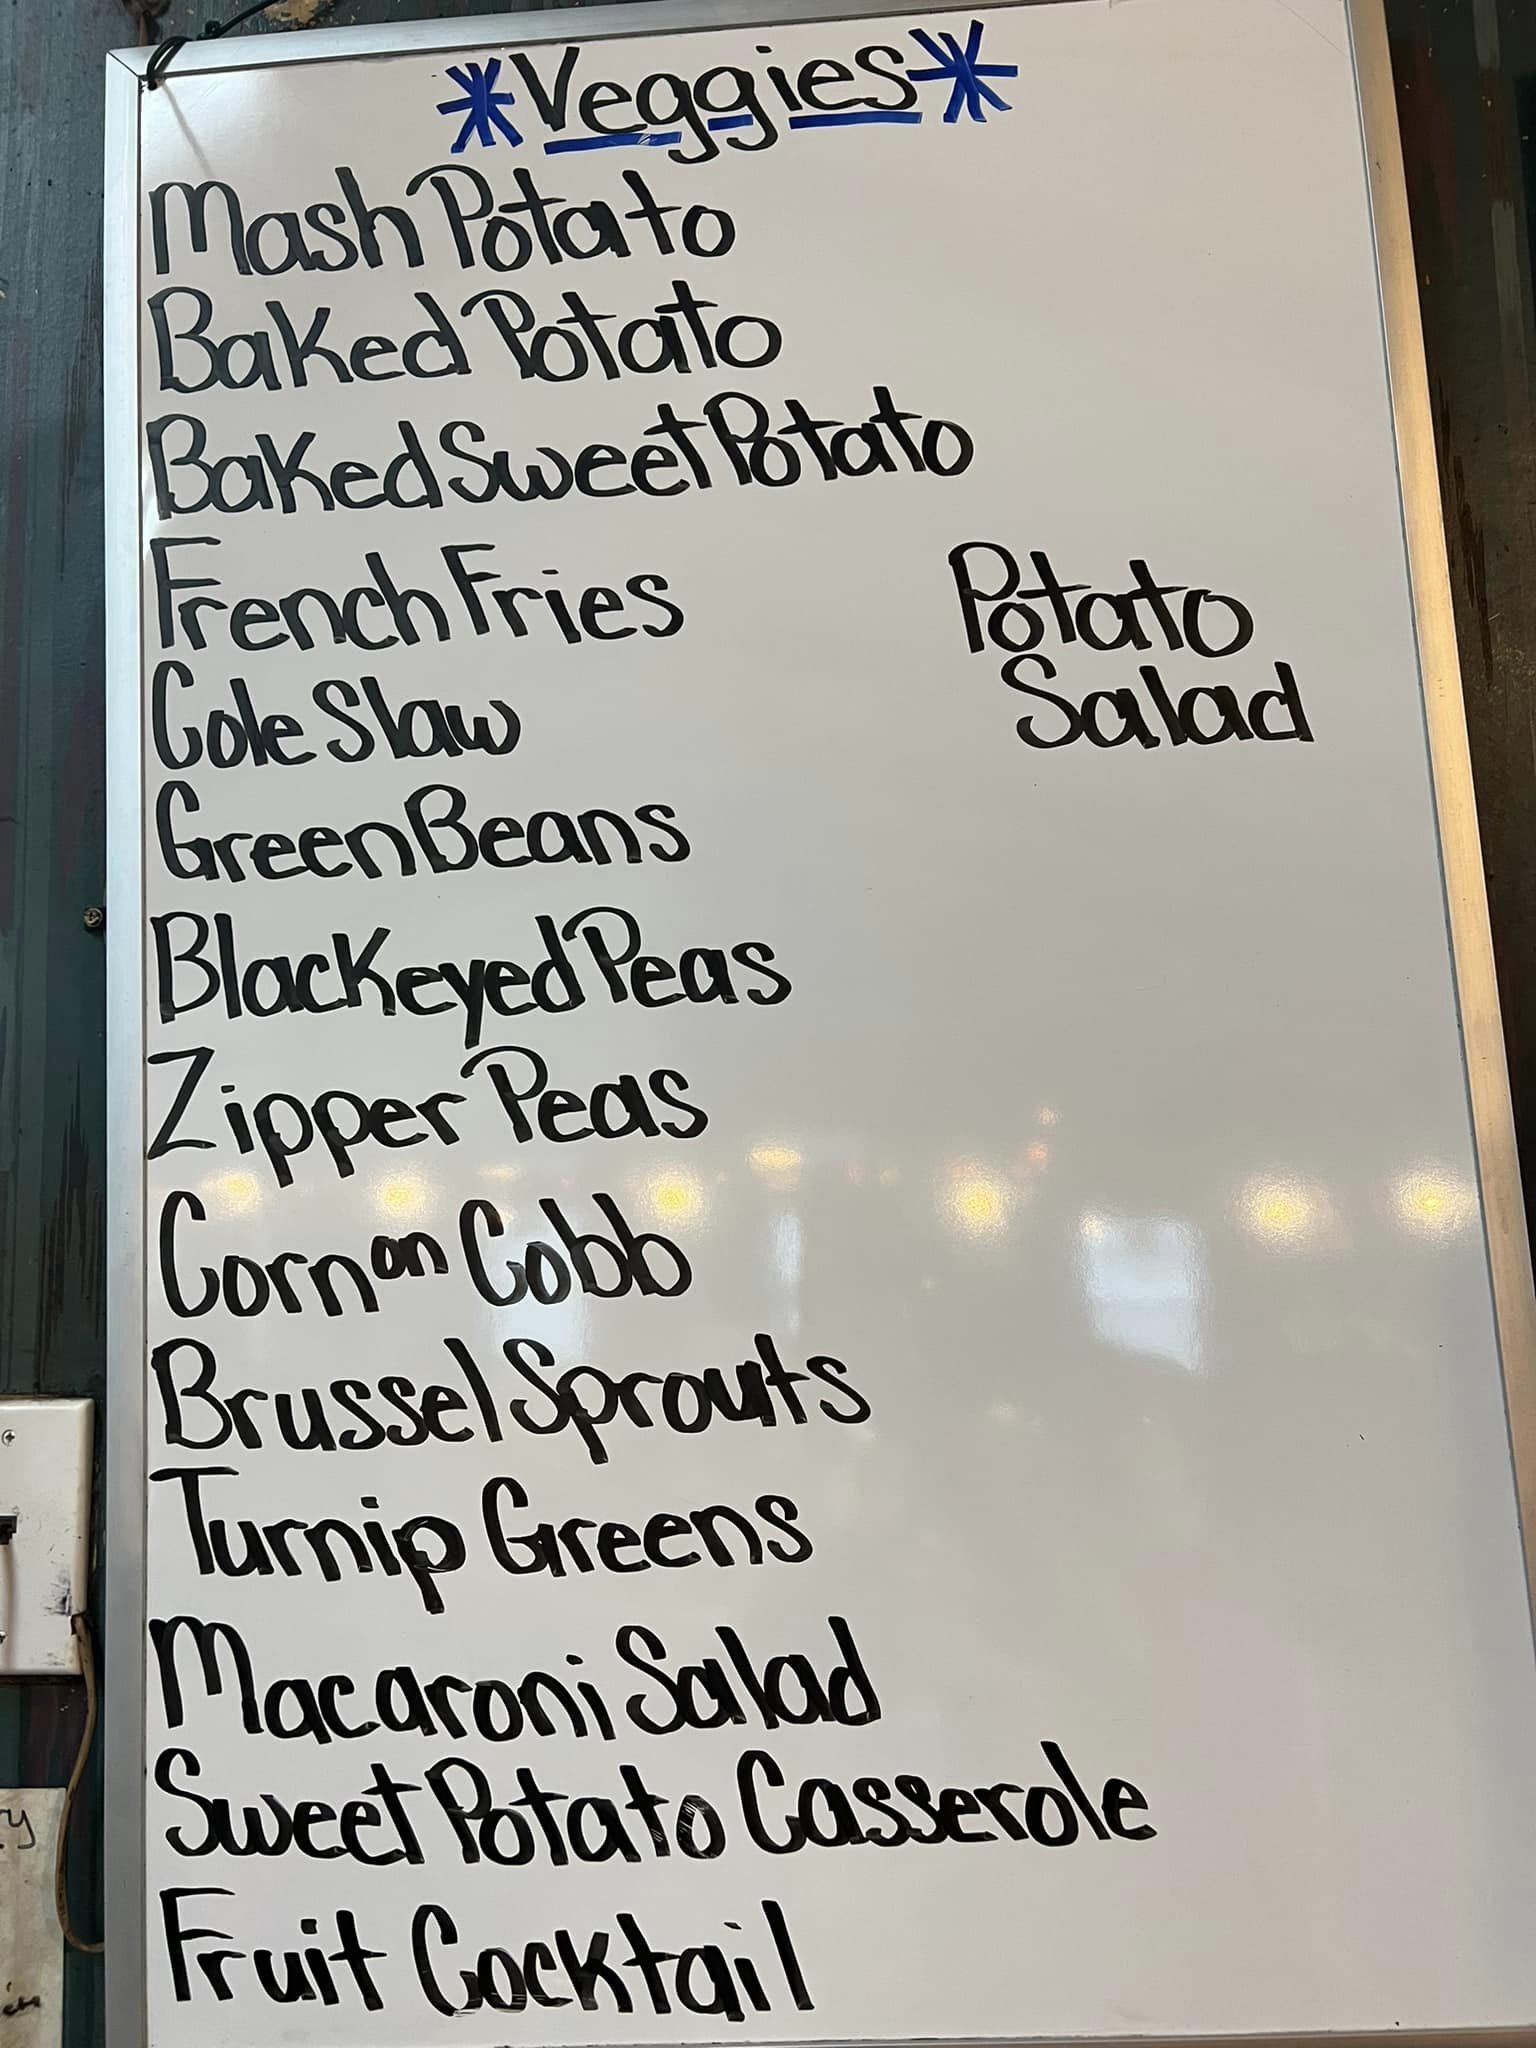 *Veggies*
Mash Potato
Baked Potato
Baked Sweet Potato
French Fries
Cole Slaw
Green Beans
Blackeyed Peas
Zipper Peas
Corn on Cobb
Brussel Sprouts
Turnip Greens
Macaroni Salad
Sweet Potato Casserole
Fruit Cocktail
Potato
Salad